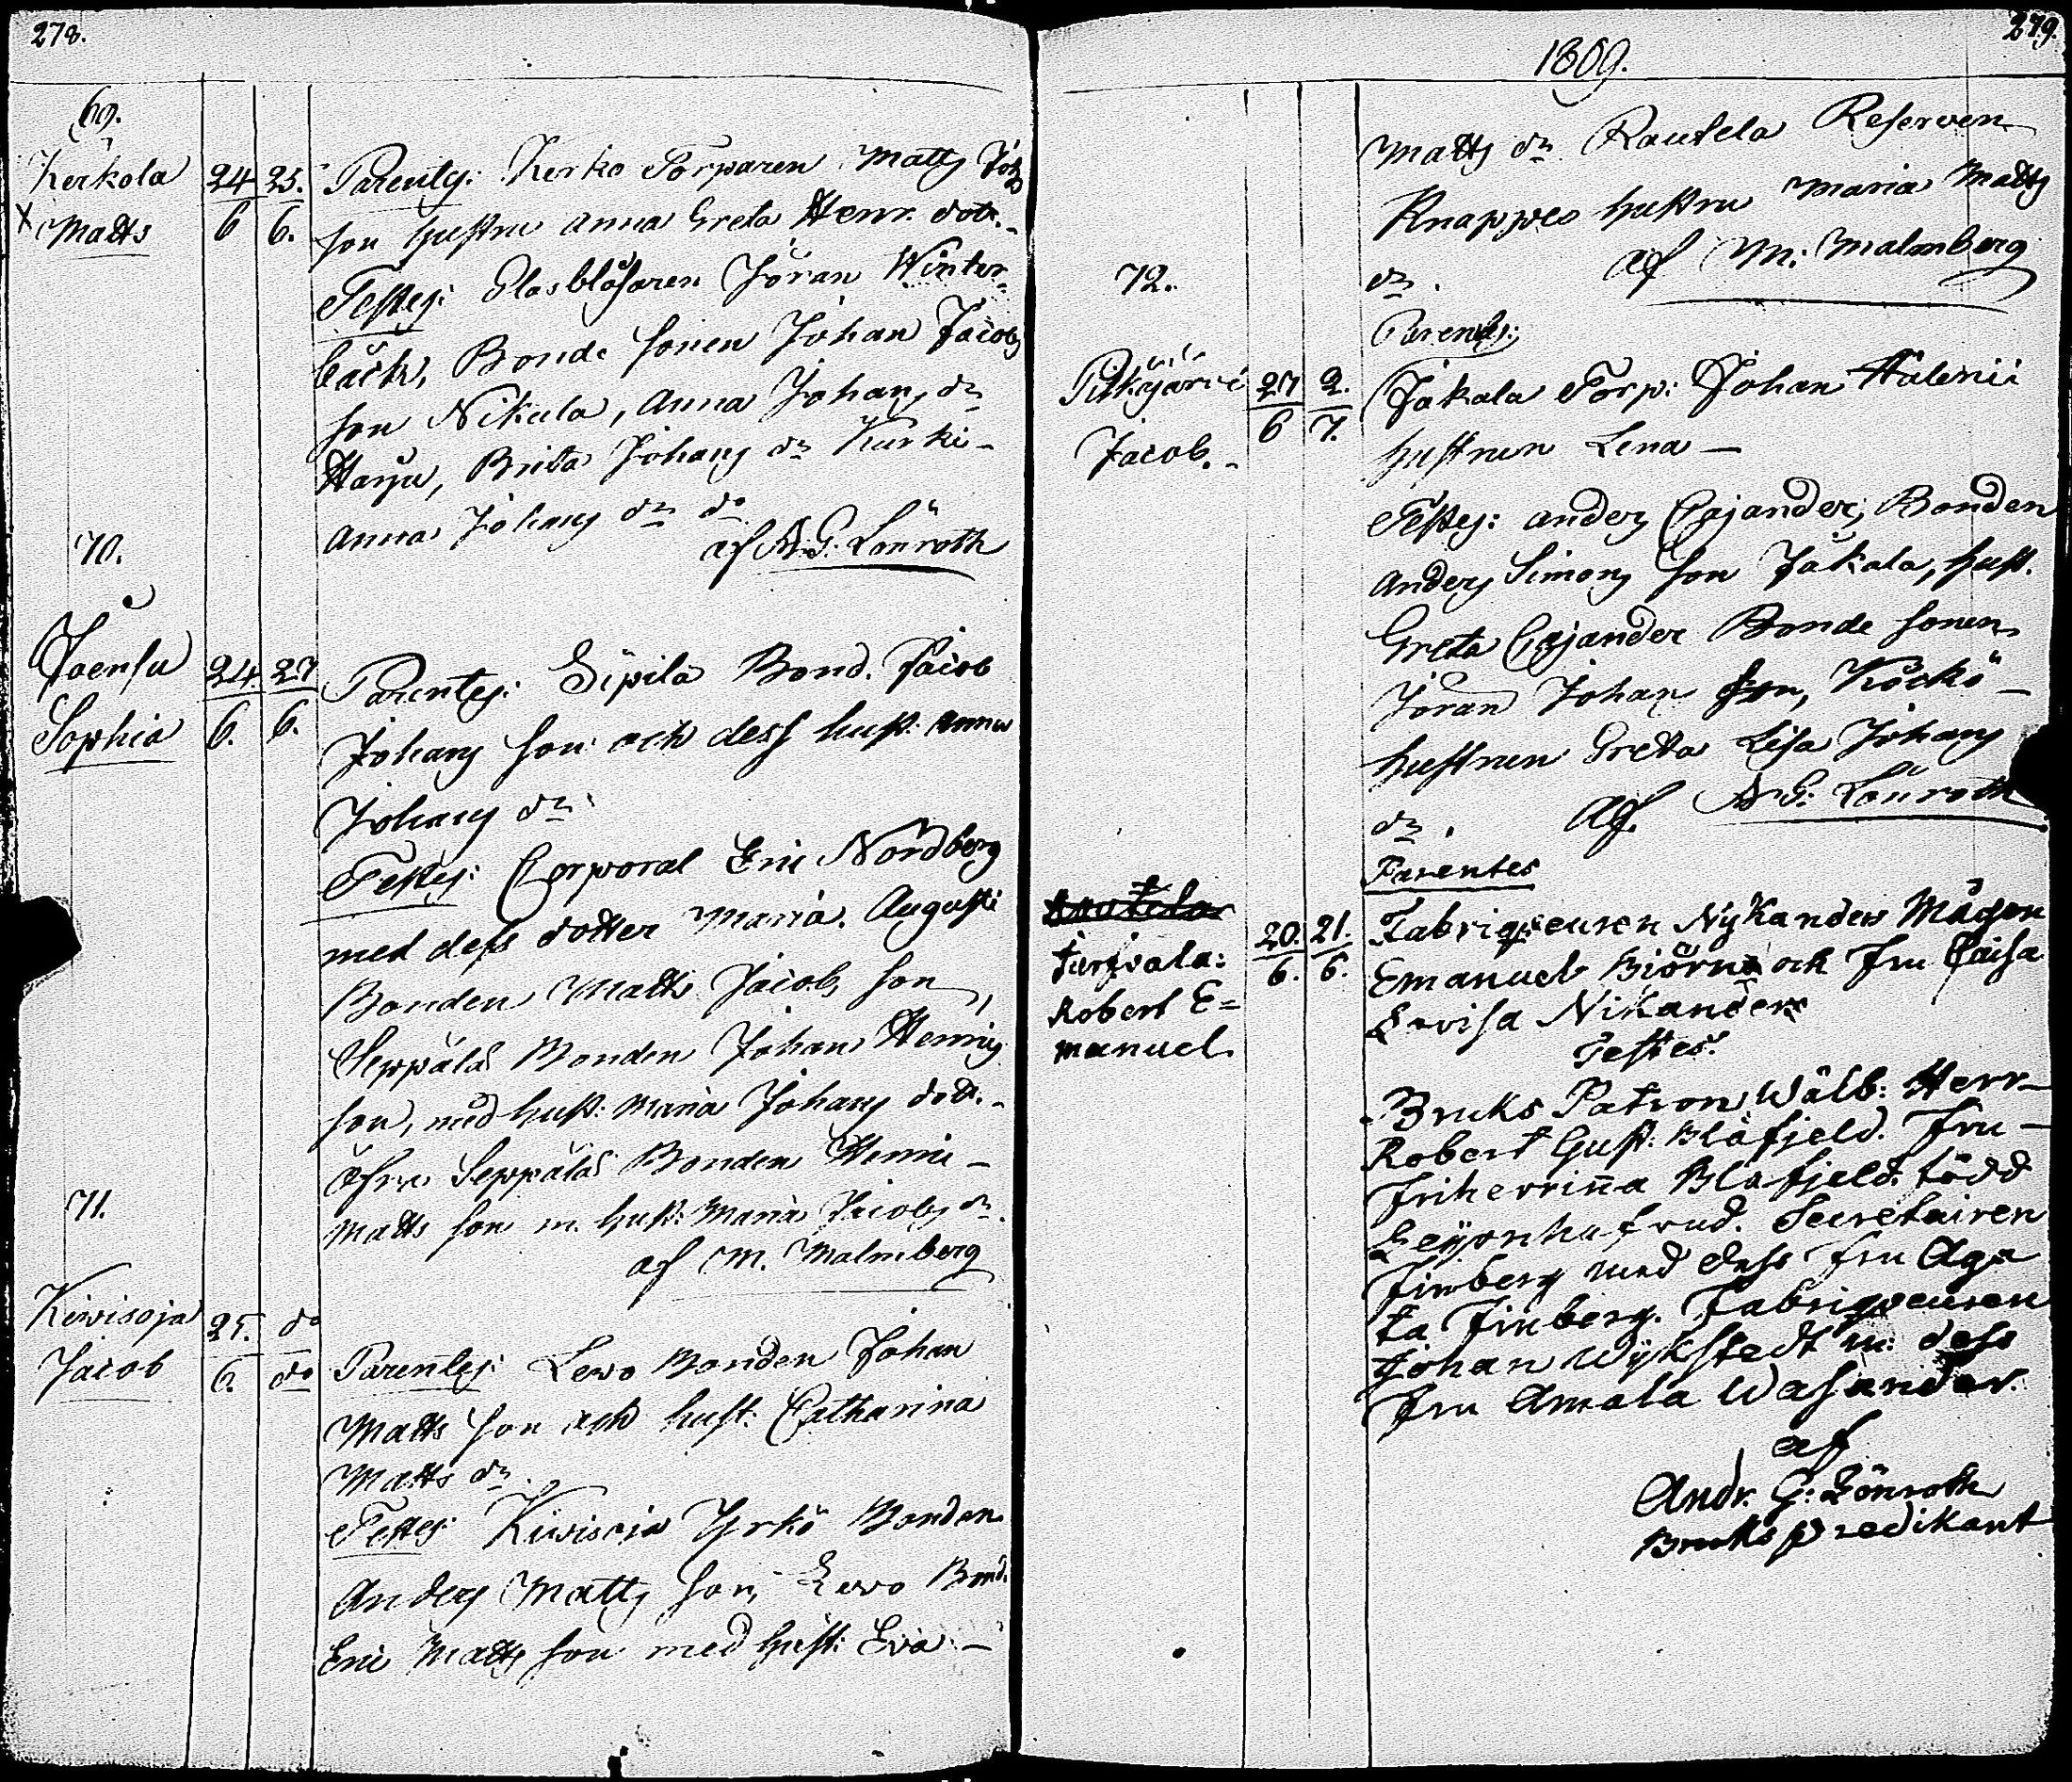 278.
69.
Kerkola 24 25. Parentes: Kerko Torparen Matts Joh
x Matts 6 6. son hustru Anna Greta Henr. dotr.
Testes: Glasblåsaren Jöran Winter-
bäck, Bonde sonen Johan Jacobs
son Nikula, Anna Johans dr
Harju, Brita Johans dr Kurki-
Anna Johans dr do
af A. G. Lönroth
70.
Joensu 24. 27 Parentes: Sipilä Bond. Jacob
Sophia 6. 6. Johans son och dess hust: Anna
Johans dr
Testes: Corporal Eric Nordberg
med dess dotter Maria. Augusti
Bonden Matts Jacobs son,
Seppälä Bonden Johan Henrics
son, med hust: Maria Johans dott.
öfre Seppälä Bonden Henric
Matts son m. hust: Maria Jacobs dr.
af M. Malmberg
71.
Kiwisoja 25. do
Jacob 6. do Parentes: Lewo Bonden Johan
Matts son och hust: Catharina
Matts dr.
Testes: Kiwisoja Yrkö Bonden
Anders Matts son, Lewo Bond.
Eric Matts son med hust: Eva
279.
1809.
Matts dr Rautela Reserven
Knappes hustru Maria Matts
dr. af M: Malmberg
72.
Parentes:
Pitkäjärvi 27 2. Jakala Torp: Johan Halenii
Jacob. 6 7. hustrun Lena
Testes: Anders Cajander, Bonden
Anders Simons son Jakala, hust.
Greta Cajander Bonde sonen
Jöran Johan son, Köckö
hustrun Greta Lisa Johans
dr. Af. A G: Lönroth
Parentes
20. 21. Fabriqueuren Nykanders Mågen
6. 6. Emanuel Biörn och Fru Caisa
Robert E= Lovisa Nikander
manuel. Testes:
Bruks Patron Wälb: Herr
Robert Gust: Blåfjeld. Fru
Friherrinna Blåfjeld. född
Leijonhufvud. Secretairen
Finberg med dess Fru Aga
ta Finberg. Fabriqueuren
Johan Wykstedt m: dess
Fru Amala Wasander.
af
Andr. G: Lönroth
Bruks predikant